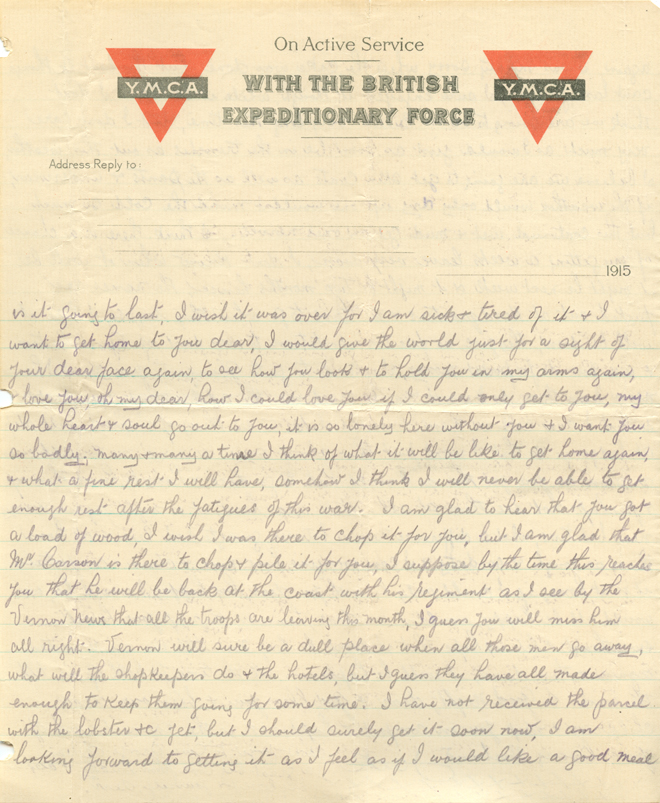 On Active Service
WITH THE BRITISH
EXPEDITIONARY FORCE
Y.M.C.A.
Y.M.C.A.
Address Reply to:
1915
is it going to last, I wish it was over for I am sick & tired of it & I
want to get home to you dear, I would give the world just for a sight of
your dear face again, to see how you look & to hold you in my arms again,
& love you, oh my dear, how I could love you if I could only get to you, my
whole heart & soul go out to you, it is so lonely here without you & I want you
so badly, many & many a time I think of what it will be like to get home again,
& what a fine rest I will have, somehow I think I will never be able to get
enough rest after the fatigues of this war. I am glad to hear that you got
a load of wood, I wish I was there to chop it for you, but I am glad that
Mr Carson is there to chop & pile it for you, I suppose by the time this reaches
you that he will be back at the coast with his regiment as I see by the
Vernon News that all the troops are leaving this month, I guess you will miss him
all right. Vernon will sure be a dull place when all those men go away,
what will the shopkeepers do & the hotels, but I guess they have all made
enough to keep them going for some time. I have not received the parcel
with the lobster &c yet, but I should surely get it soon now, I am
looking forward to getting it as I feel as if I would like a good meal